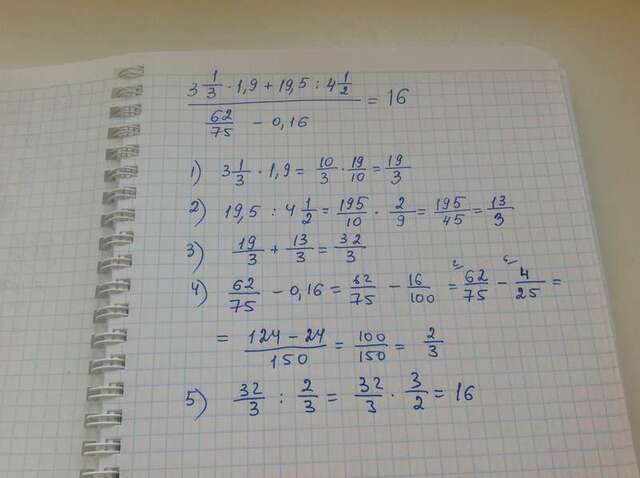 (3 1/3 · 1,9 + 19,5 : 4 1/2) / (62/75 - 0,16) = 16
1) 3 1/3 · 1,9 = 10/3 · 19/10 = 19/3
2) 19,5 : 4 1/2 = 195/10 · 2/9 = 195/45 = 13/3
3) 19/3 + 13/3 = 32/3
4) 62/75 - 0,16 = 62/75 - 16/100 = 62/75 - 4/25 =
= (124 - 24)/150 = 100/150 = 2/3
5) 32/3 : 2/3 = 32/3 · 3/2 = 16